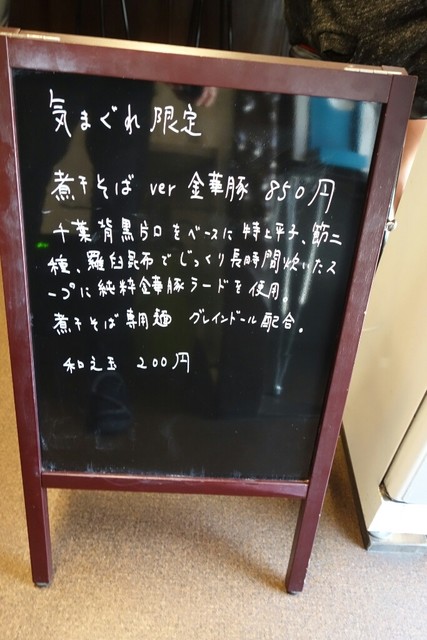 気まぐれ限定
煮干そば ver 金華豚 850円
千葉背黒片口をベースに特上平子、節二
種、羅臼昆布でじっくり長時間炊いたス
ープに純粋金華豚ラードを使用。
煮干そば専用麺 グレインドール配合。
和え玉 200円